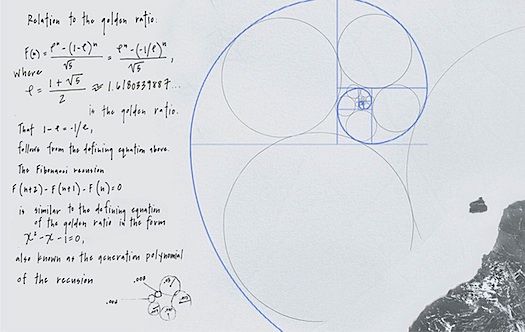 Relation to the golden ratio:
F(n) = φⁿ-(1-φ)ⁿ/√5 = φⁿ-(-1/φ)ⁿ/√5,
where
φ = 1+√5/2 ≈ 1.6180339887...
is the golden ratio.
That 1-φ=-1/φ,
follows from the defining equation above.
The Fibonacci recursion
F(n+2)-F(n+1)-F(n)=0
is similar to the defining equation
of the golden ratio in the form
x²-x-1=0,
also known as the generation polynomial
of the recusion